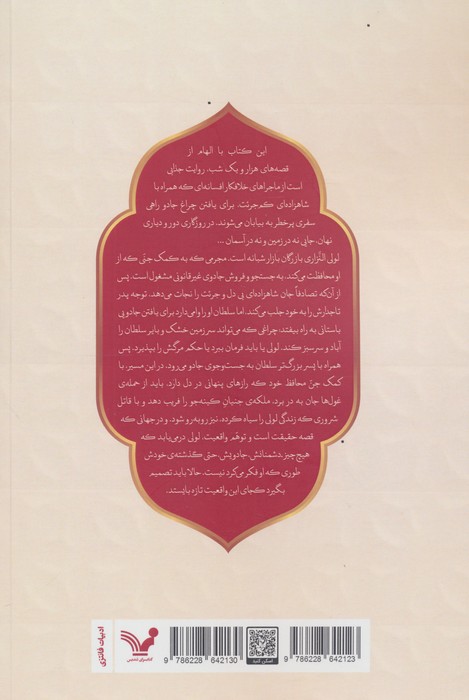 این کتاب با الهام از
قصه‌های هزار و یک شب، روایت جذابی
است از ماجراهای خلافکار افسانه‌ای که همراه با
شاهزاده‌ای کم‌جرئت، برای یافتن چراغ جادو راهی
سفری پرخطر به بیابان می‌شوند. در روزگاری دور و دیاری
نهان، جایی نه در زمین و نه در آسمان ...
لولی النزاری بازرگان بازار شبانه است. مجرمی که به کمک جنّی که از
او محافظت می‌کند، به جستجو و فروش جادوی غیرقانونی مشغول است. پس
از آن‌که تصادفاً جان شاهزاده‌ای بی دل و جرئت را نجات می‌دهد، توجه پدر
تاجدارش را به خود جلب می‌کند. اما سلطان او را وامی‌دارد برای یافتن جادویی
باستانی به راه بیفتد؛ چراغی که می‌تواند سرزمین خشک و بایر سلطان را
آباد و سرسبز کند. لولی یا باید فرمان ببرد یا حکم مرگش را بپذیرد. پس
همراه با پسر بزرگ‌تر سلطان به جست‌وجوی جادو می‌رود. در این مسیر، با
کمک جنّ محافظ خود که رازهای پنهانی در دل دارد، باید از حمله‌ی
غول‌ها جان به در برد، ملکه‌ی جنیان کینه‌جو را فریب دهد و با قاتل
شروری که زندگی لولی را سیاه کرده، نیز روبه‌رو شود. و در جهانی که
قصه حقیقت است و توهّم واقعیت، لولی درمی‌یابد که
هیچ چیز، دشمنانش، جادویش، حتی گذشته‌ی خودش
طوری که او فکر می‌کرد نیست. حالا باید تصمیم
بگیرد کجای این واقعیت تازه بایستد.
ادبیات فانتزی
کتابسرای تندیس
9 786228 642130
اسکن کنید
9 786228 642123